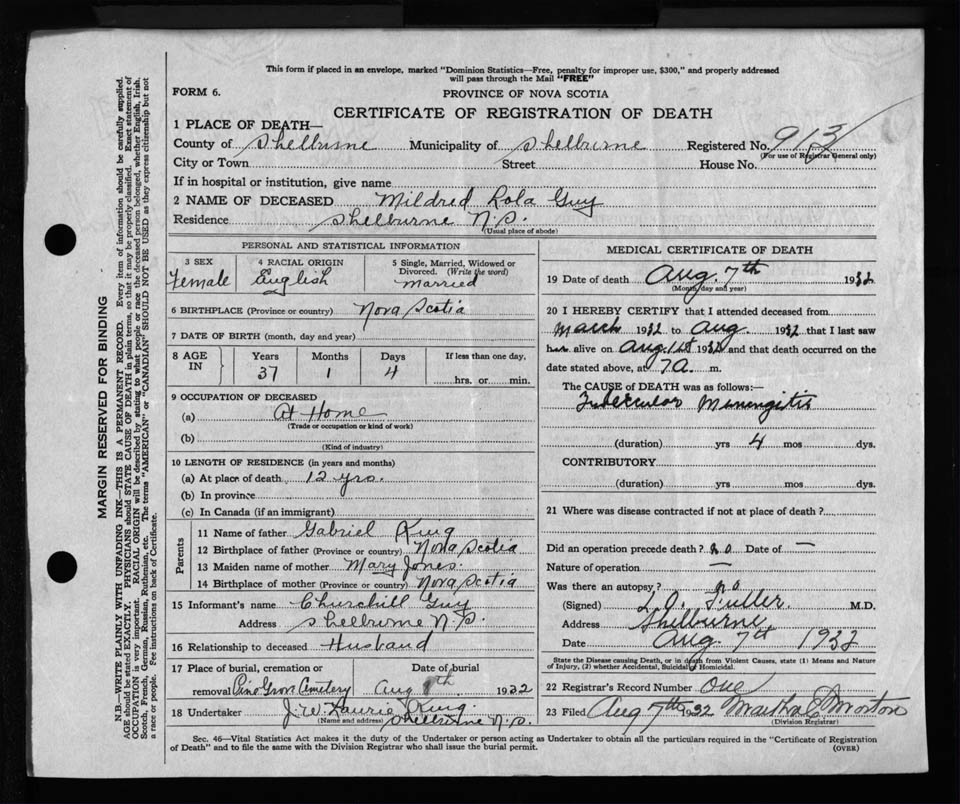 This form if placed in an envelope, marked "Dominion Statistics—Free, penalty for improper use, $300," and properly addressed
will pass through the Mail "FREE"
FORM 6.
PROVINCE OF NOVA SCOTIA
CERTIFICATE OF REGISTRATION OF DEATH
1 PLACE OF DEATH—
County of Shelburne Municipality of Shelburne Registered No. 913
(For use of Registrar General only)
City or Town Street House No.
If in hospital or institution, give name
2 NAME OF DECEASED Mildred Lola Guy
Residence Shelburne N.S.
(Usual place of abode)
PERSONAL AND STATISTICAL INFORMATION
3 SEX
Female
4 RACIAL ORIGIN
English
5 Single, Married, Widowed or
Divorced. (Write the word)
married
6 BIRTHPLACE (Province or country) Nova Scotia
7 DATE OF BIRTH (month, day and year)
8 AGE
IN
Years Months Days If less than one day,
37 1 4 hrs. or min.
9 OCCUPATION OF DECEASED
(a) At Home
(Trade or occupation or kind of work)
(b)
(Kind of industry)
10 LENGTH OF RESIDENCE (in years and months)
(a) At place of death 12 yrs.
(b) In province
(c) In Canada (if an immigrant)
Parents
11 Name of father Gabriel King
12 Birthplace of father (Province or country) Nova Scotia
13 Maiden name of mother Mary Jones
14 Birthplace of mother (Province or country) Nova Scotia
15 Informant's name Churchill Guy
Address Shelburne N.S.
16 Relationship to deceased Husband
17 Place of burial, cremation or Date of burial
removal Pine Grove Cemetery Aug 1932
18 Undertaker J. W. Laurie King
(Name and address) Shelburne N.S.
MEDICAL CERTIFICATE OF DEATH
19 Date of death Aug. 7th 1932
(Month, day and year)
20 I HEREBY CERTIFY that I attended deceased from
March 1932 to Aug. 1932 that I last saw
her alive on Aug 1st 1932 and that death occurred on the
date stated above, at 7 a. m.
The CAUSE of DEATH was as follows:—
Tubercular Meningitis
(duration) yrs 4 mos dys.
CONTRIBUTORY
(duration) yrs. mos. dys.
21 Where was disease contracted if not at place of death?
Did an operation precede death? no Date of —
Nature of operation —
Was there an autopsy? no
(Signed) L.O. Fuller. M.D.
Address Shelburne,
Date Aug. 7th 1932
State the Disease causing Death, or in death from Violent Causes, state (1) Means and Nature
of Injury, (2) whether Accidental, Suicidal or Homicidal.
22 Registrar's Record Number one
23 Filed Aug 7th 1932 Martha C Morton
(Division Registrar)
Sec. 46—Vital Statistics Act makes it the duty of the Undertaker or person acting as Undertaker to obtain all the particulars required in the "Certificate of Registration
of Death" and to file the same with the Division Registrar who shall issue the burial permit.
(OVER)
MARGIN RESERVED FOR BINDING
N.B.—WRITE PLAINLY WITH UNFADING INK—THIS IS A PERMANENT RECORD. Every item of information should be carefully supplied.
AGE should be stated EXACTLY. PHYSICIANS should STATE CAUSE OF DEATH in plain terms, so that it may be properly classified. Exact statement of
OCCUPATION is very important. RACIAL ORIGIN will be described by stating to what people or race the deceased person belonged, whether English, Irish,
Scotch, French, German, Russian, Ruthenian, etc. The terms "AMERICAN" or "CANADIAN" SHOULD NOT BE USED as they express citizenship but not
a race or people. Fee instructions on back of Certificate.